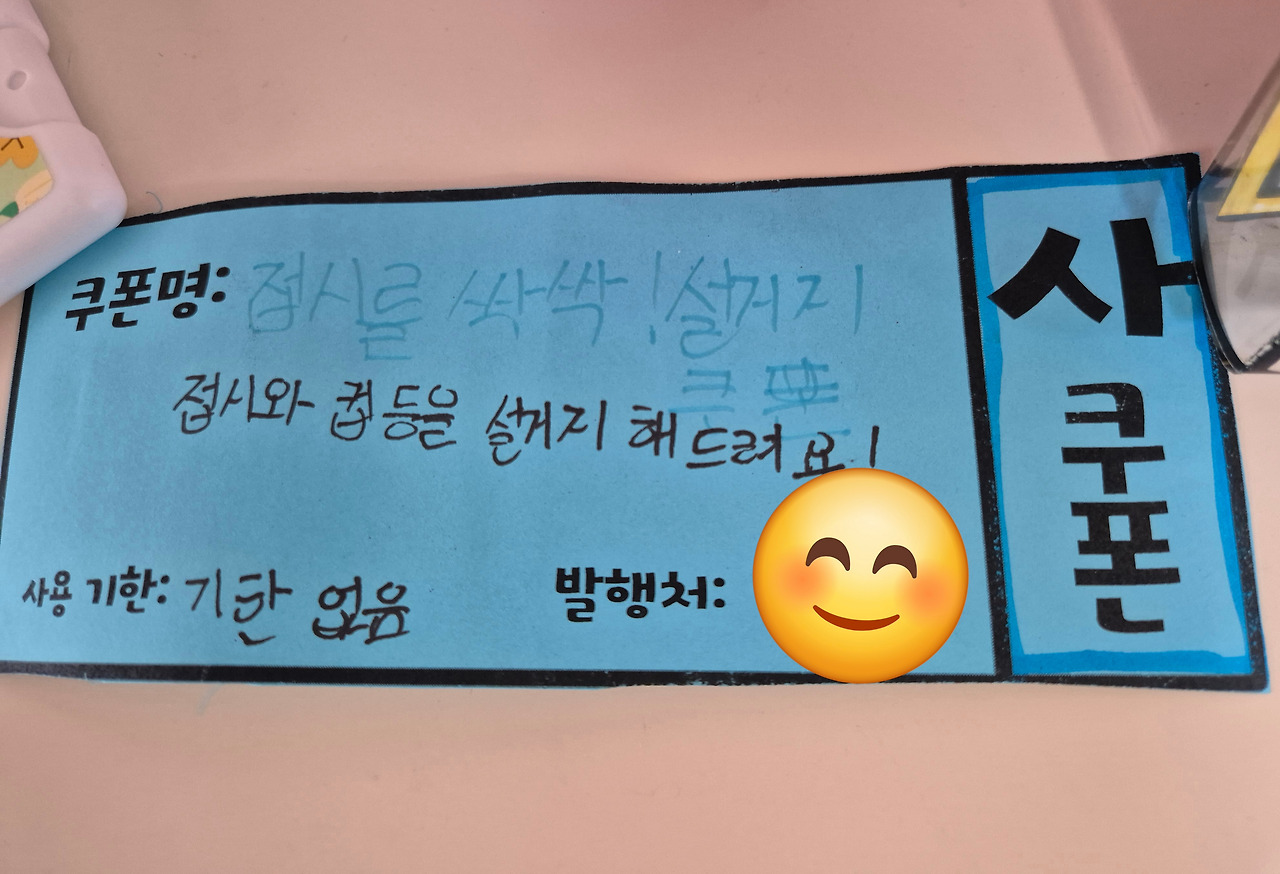 쿠폰명: 접시를 싹싹! 설거지
쿠폰
접시와 컵 등을 설거지 해드려요!
사용 기한: 기한 없음
발행처:
사
쿠폰